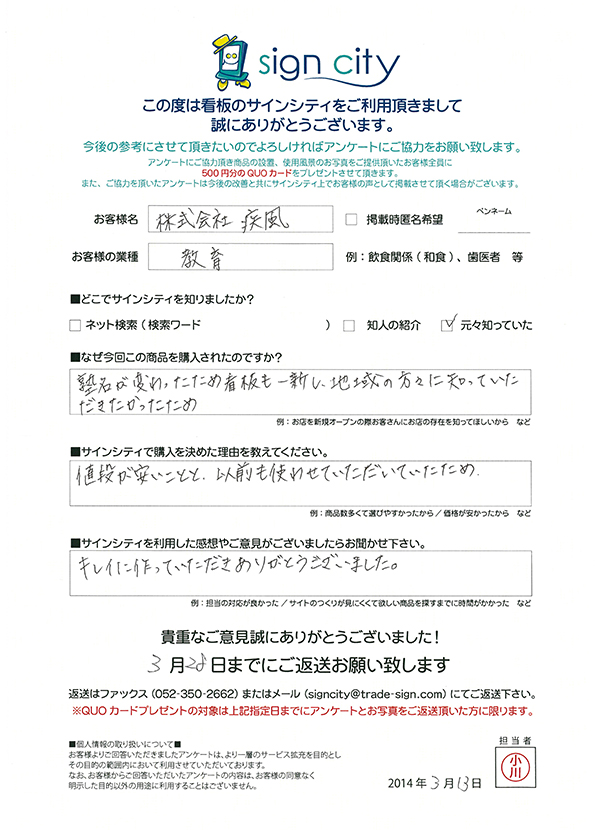 sign city
この度は看板のサインシティをご利用頂きまして
誠にありがとうございます。
今後の参考にさせて頂きたいのでよろしければアンケートにご協力をお願い致します。
アンケートにご協力頂き商品の設置、使用風景のお写真をご提供頂いたお客様全員に
500円分のQUOカードをプレゼントさせて頂きます。
また、ご協力を頂いたアンケートは今後の改善と共にサインシティ上でお客様の声として掲載させて頂く場合がございます。
お客様名 株式会社 疾風 □ 掲載時匿名希望 ペンネーム
お客様の業種 教育 例:飲食関係(和食)、歯医者 等
■どこでサインシティを知りましたか?
□ ネット検索(検索ワード ) □ 知人の紹介 ☑ 元々知っていた
■なぜ今回この商品を購入されたのですか?
塾名が変わったため看板も一新し、地域の方々に知っていた
だきたかったため
例:お店を新規オープンの際お客さんにお店の存在を知ってほしいから など
■サインシティで購入を決めた理由を教えてください。
値段が安いことと、以前も使わせていただいていたため.
例:商品数多くて選びやすかったから/価格が安かったから など
■サインシティを利用した感想やご意見がございましたらお聞かせ下さい。
キレイに作っていただきありがとうございました。
例:担当の対応が良かった/サイトのつくりが見にくくて欲しい商品を探すまでに時間がかかった など
貴重なご意見誠にありがとうございました!
3月28日までにご返送お願い致します
返送はファックス(052-350-2662)またはメール(signcity@trade-sign.com)にてご返送下さい。
※QUOカードプレゼントの対象は上記指定日までにアンケートとお写真をご返送頂いた方に限ります。
■個人情報の取り扱いについて■
お客様よりご回答いただきましたアンケートは、より一層のサービス拡充を目的とし
その目的の範囲内において利用させていただいております。
なお、お客様からご回答いただいたアンケートの内容は、お客様の同意なく
明示した目的以外の用途に利用することはございません。
担当者
小川
2014年3月13日